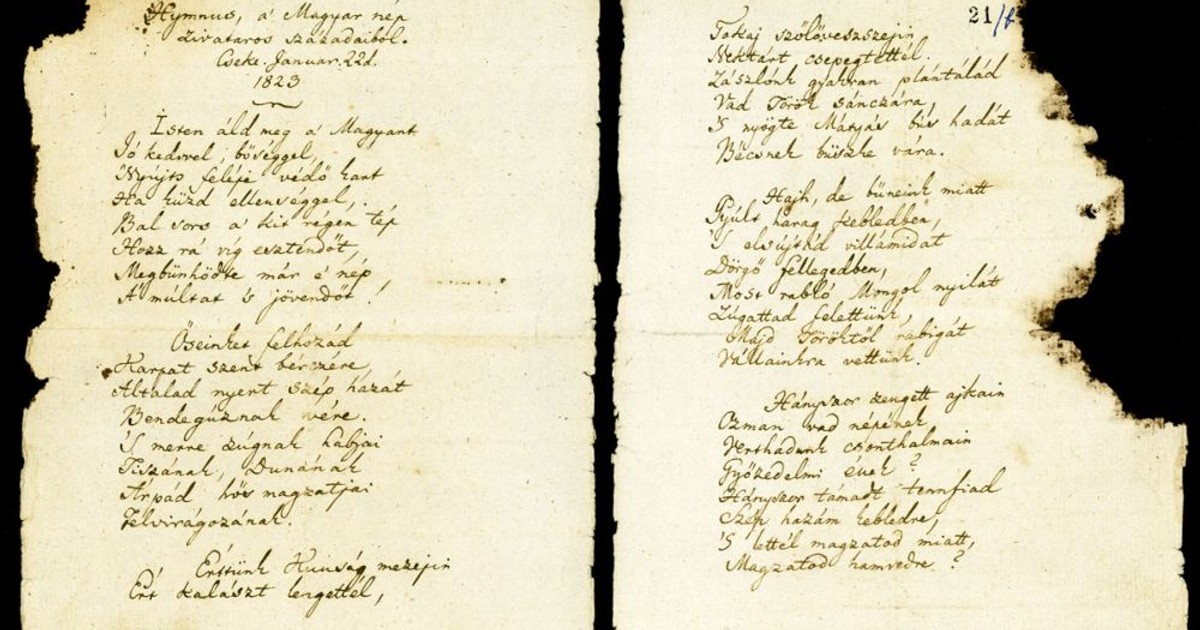 Hymnus, a' Magyar nép
zivataros századaiból.
Cseke. Januar. 22d.
1823
Isten áld meg a' Magyart
Jó kedvvel, bőséggel,
Nyújts feléje védő kart
Ha küzd ellenséggel,
Bal sors a' kit régen tép
Hozz rá víg esztendőt,
Megbűnhődte már e' nép
A' múltat 's jövendőt!
Őseinket felhozád
Kárpát szent bérczére,
Általad nyert szép hazát
Bendegúznak vére.
'S merre zúgnak habjai
Tiszának, Dunának
Árpád hős magzatjai
Felvirágozának.
Értünk Kunság mezejin
Ért kalászt lengettél,
21/b
Tokaj szőlővesszejin
Nektárt csepegtettél.
Zászlónk gyakran plántálád
Vad Török sánczára,
'S nyögte Mátyás bús hadát
Bécsnek büszke vára.
Hajh, de bűneink miatt
Gyúlt harag kebledben,
'S elsújtád villámidat
Dörgő fellegedben,
Most rabló Mongol nyilát
Zúgattad felettünk,
Majd Töröktől rabigát
Vállainkra vettünk.
Hányszor zengett ajkain
Ozman vad népének
Vert hadunk csonthalmain
Győzedelmi ének?
Hányszor támadt tennfiad
Szép hazám kebledre,
'S lettél magzatod miatt,
Magzatod hamvvedre?